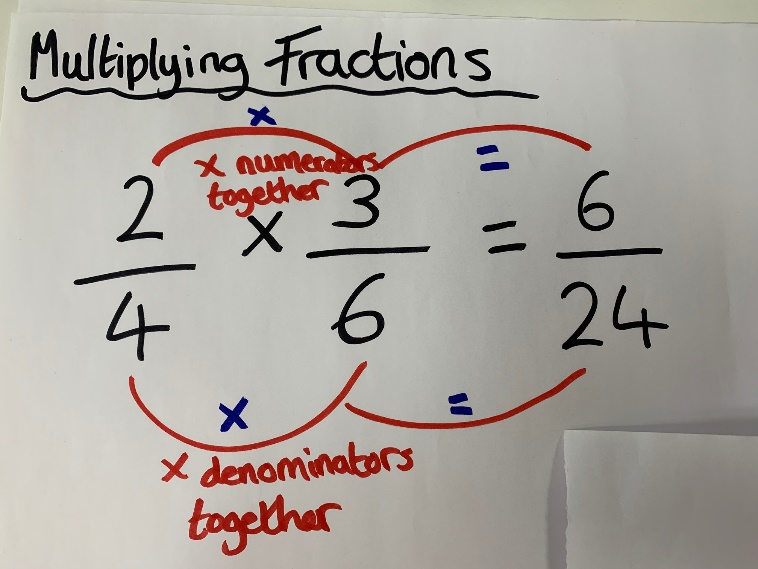 Multiplying Fractions
x
=
x numerators
together
2/4 x 3/6 = 6/24
x
=
x denominators
together